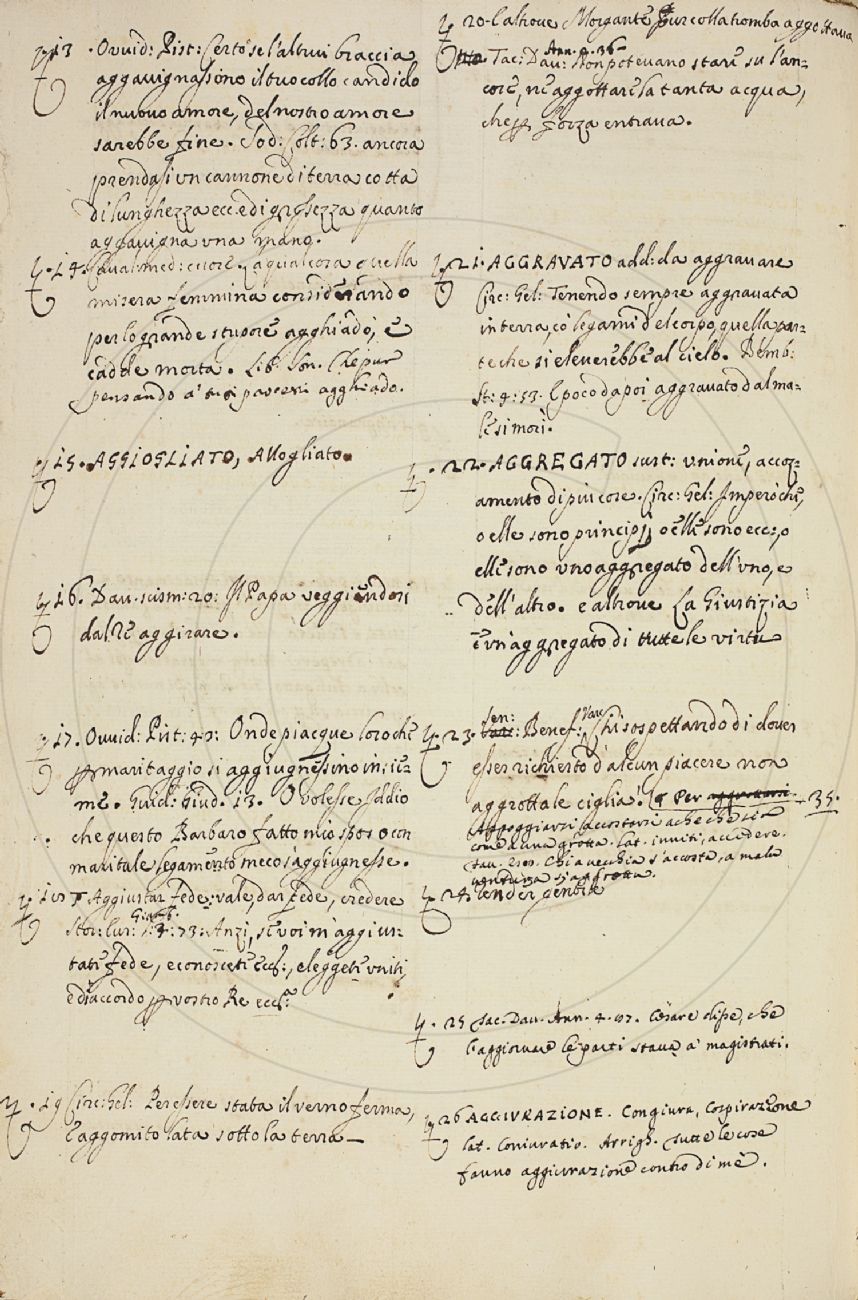 13 · Ovvid: Pist: Certo se l'altrui braccia
aggavignassino il tuo collo candido
il nuovo amore, del nostro amore
sarebbe fine. Sod: Colt: 63. ancora
prendasi un cannone di terra cotta
di lunghezza ecc. e di grossezza quanto
aggavigna una mano.
14. Caval: med: cuore. La qual cosa quella
misera femmina considerando
per lo grande stupore agghiadò, e
cadde morta. Lib. Son. Che pur
pensando a' suoi agghiado.
15. AGGIOGLIATO, Allogliato.
16. Dav. scism: 20: Il Papa veggiendosi
dal Re aggirare.
17. Ovvid: Pist: 49: Onde piacque loro che
p maritaggio si aggiugnessino insie-
me. Guid: Giud. 13. O volesse Iddio
che questo Barbaro fatto mio sposo con
maritale legamento meco s'aggiugnesse.
18 Aggiustar fede: vale, dar fede, credere
Stor: Eur: Giamb. 3: 73: Anzi, se voi m'aggius-
tate fede, e conoscete ecc:, eleggete uniti,
e d'accordo p vostro Re ecc:
19 Circ: Gel: Per essere stata il verno ferma,
e aggomitolata sotto la terra
20. E altrove Morgante pur colla tromba aggottava
Tac: Dav: Ann. 2. 36. Non potevano stare su l'an-
core, ne aggottare la tanta acqua,
che p forza entrava.
21. AGGRAVATO add: da aggravare
Circ: Gel: Tenendo sempre aggravata
in terra, co' legami del corpo, quella par-
te che si eleverebbe al cielo. Bemb:
St: 4: 53. E poco dapoi aggravato dal ma-
le si morì.
22. AGGREGATO sust: unione, accoz-
amento di più cose. Circ: Gel: Imperò che,
o elle sono principj, o elle sono ecc:, o
elle sono uno aggregato dell'uno, e
dell'altro. e altrove La Giustizia
è un aggregato di tutte le virtù
23. Sen: Benef: Varc: Chi sospettando di dover
esser richiesto d'alcun piacere non
aggrotta le ciglia? Per 35.
Appoggiarsi accostarsi a che che sia
come a una grotta. Lat. inniti, accedere.
Chi a vecchia s'accosta, a mala
ventura s'aggrotta.
24.
25 Tac. Dav. Ann. 4. 97. Cesare disse, che
l'aggiornare le parti stava a' magistrati.
26 AGGIURAZIONE. Congiura, Cospirazione
lat. Coniuratio. Arrigh. Tutte le cose
fanno aggiurazione contro di me.